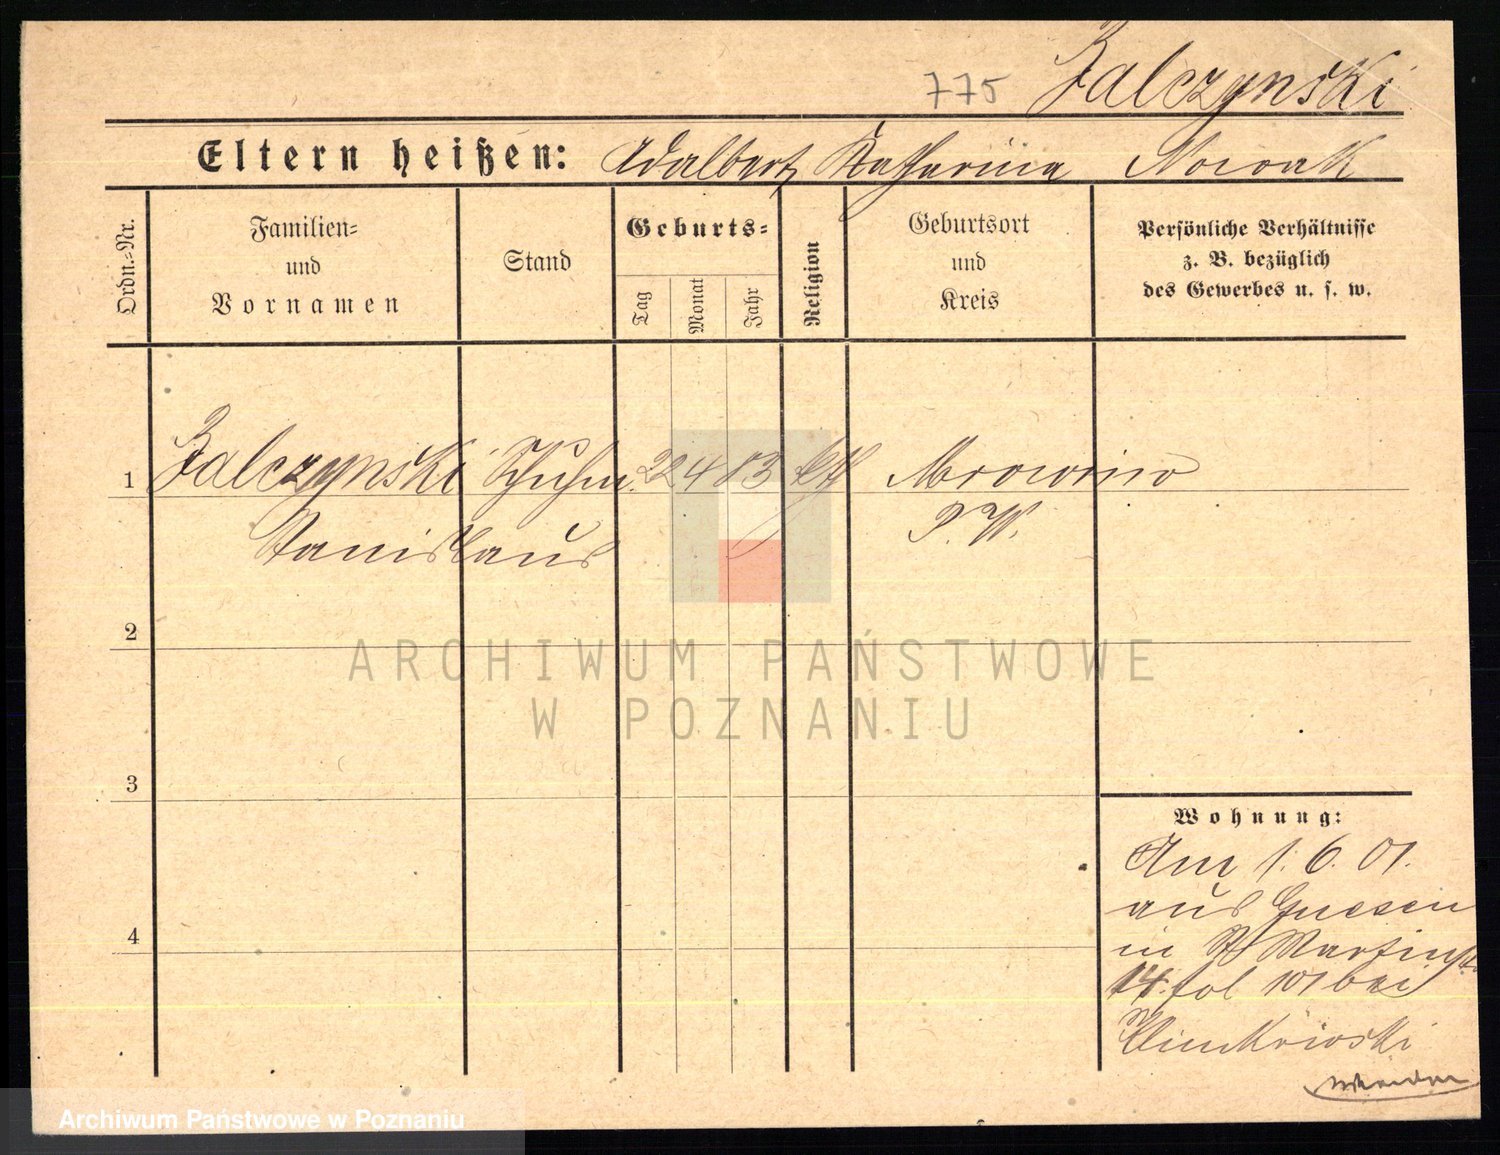 775 Zalczynski
Eltern heißen: Adalbert Katharina Nowak
Ordn.-Nr.
Familien-
und
Vornamen
Stand
Geburts-
Tag
Monat
Jahr
Religion
Geburtsort
und
Kreis
Persönliche Verhältnisse
z. B. bezüglich
des Gewerbes u. s. w.
1 Zalczynski Schuhm. 22 4 83 kth Mrowino
Stanislaus P. W.
2
ARCHIWUM PAŃSTWOWE
W POZNANIU
3
Wohnung:
Am 1. 6. 01.
aus Gnesen
4
in St Martinstr
14. fol 101 bei
Archiwum Państwowe w Poznaniu